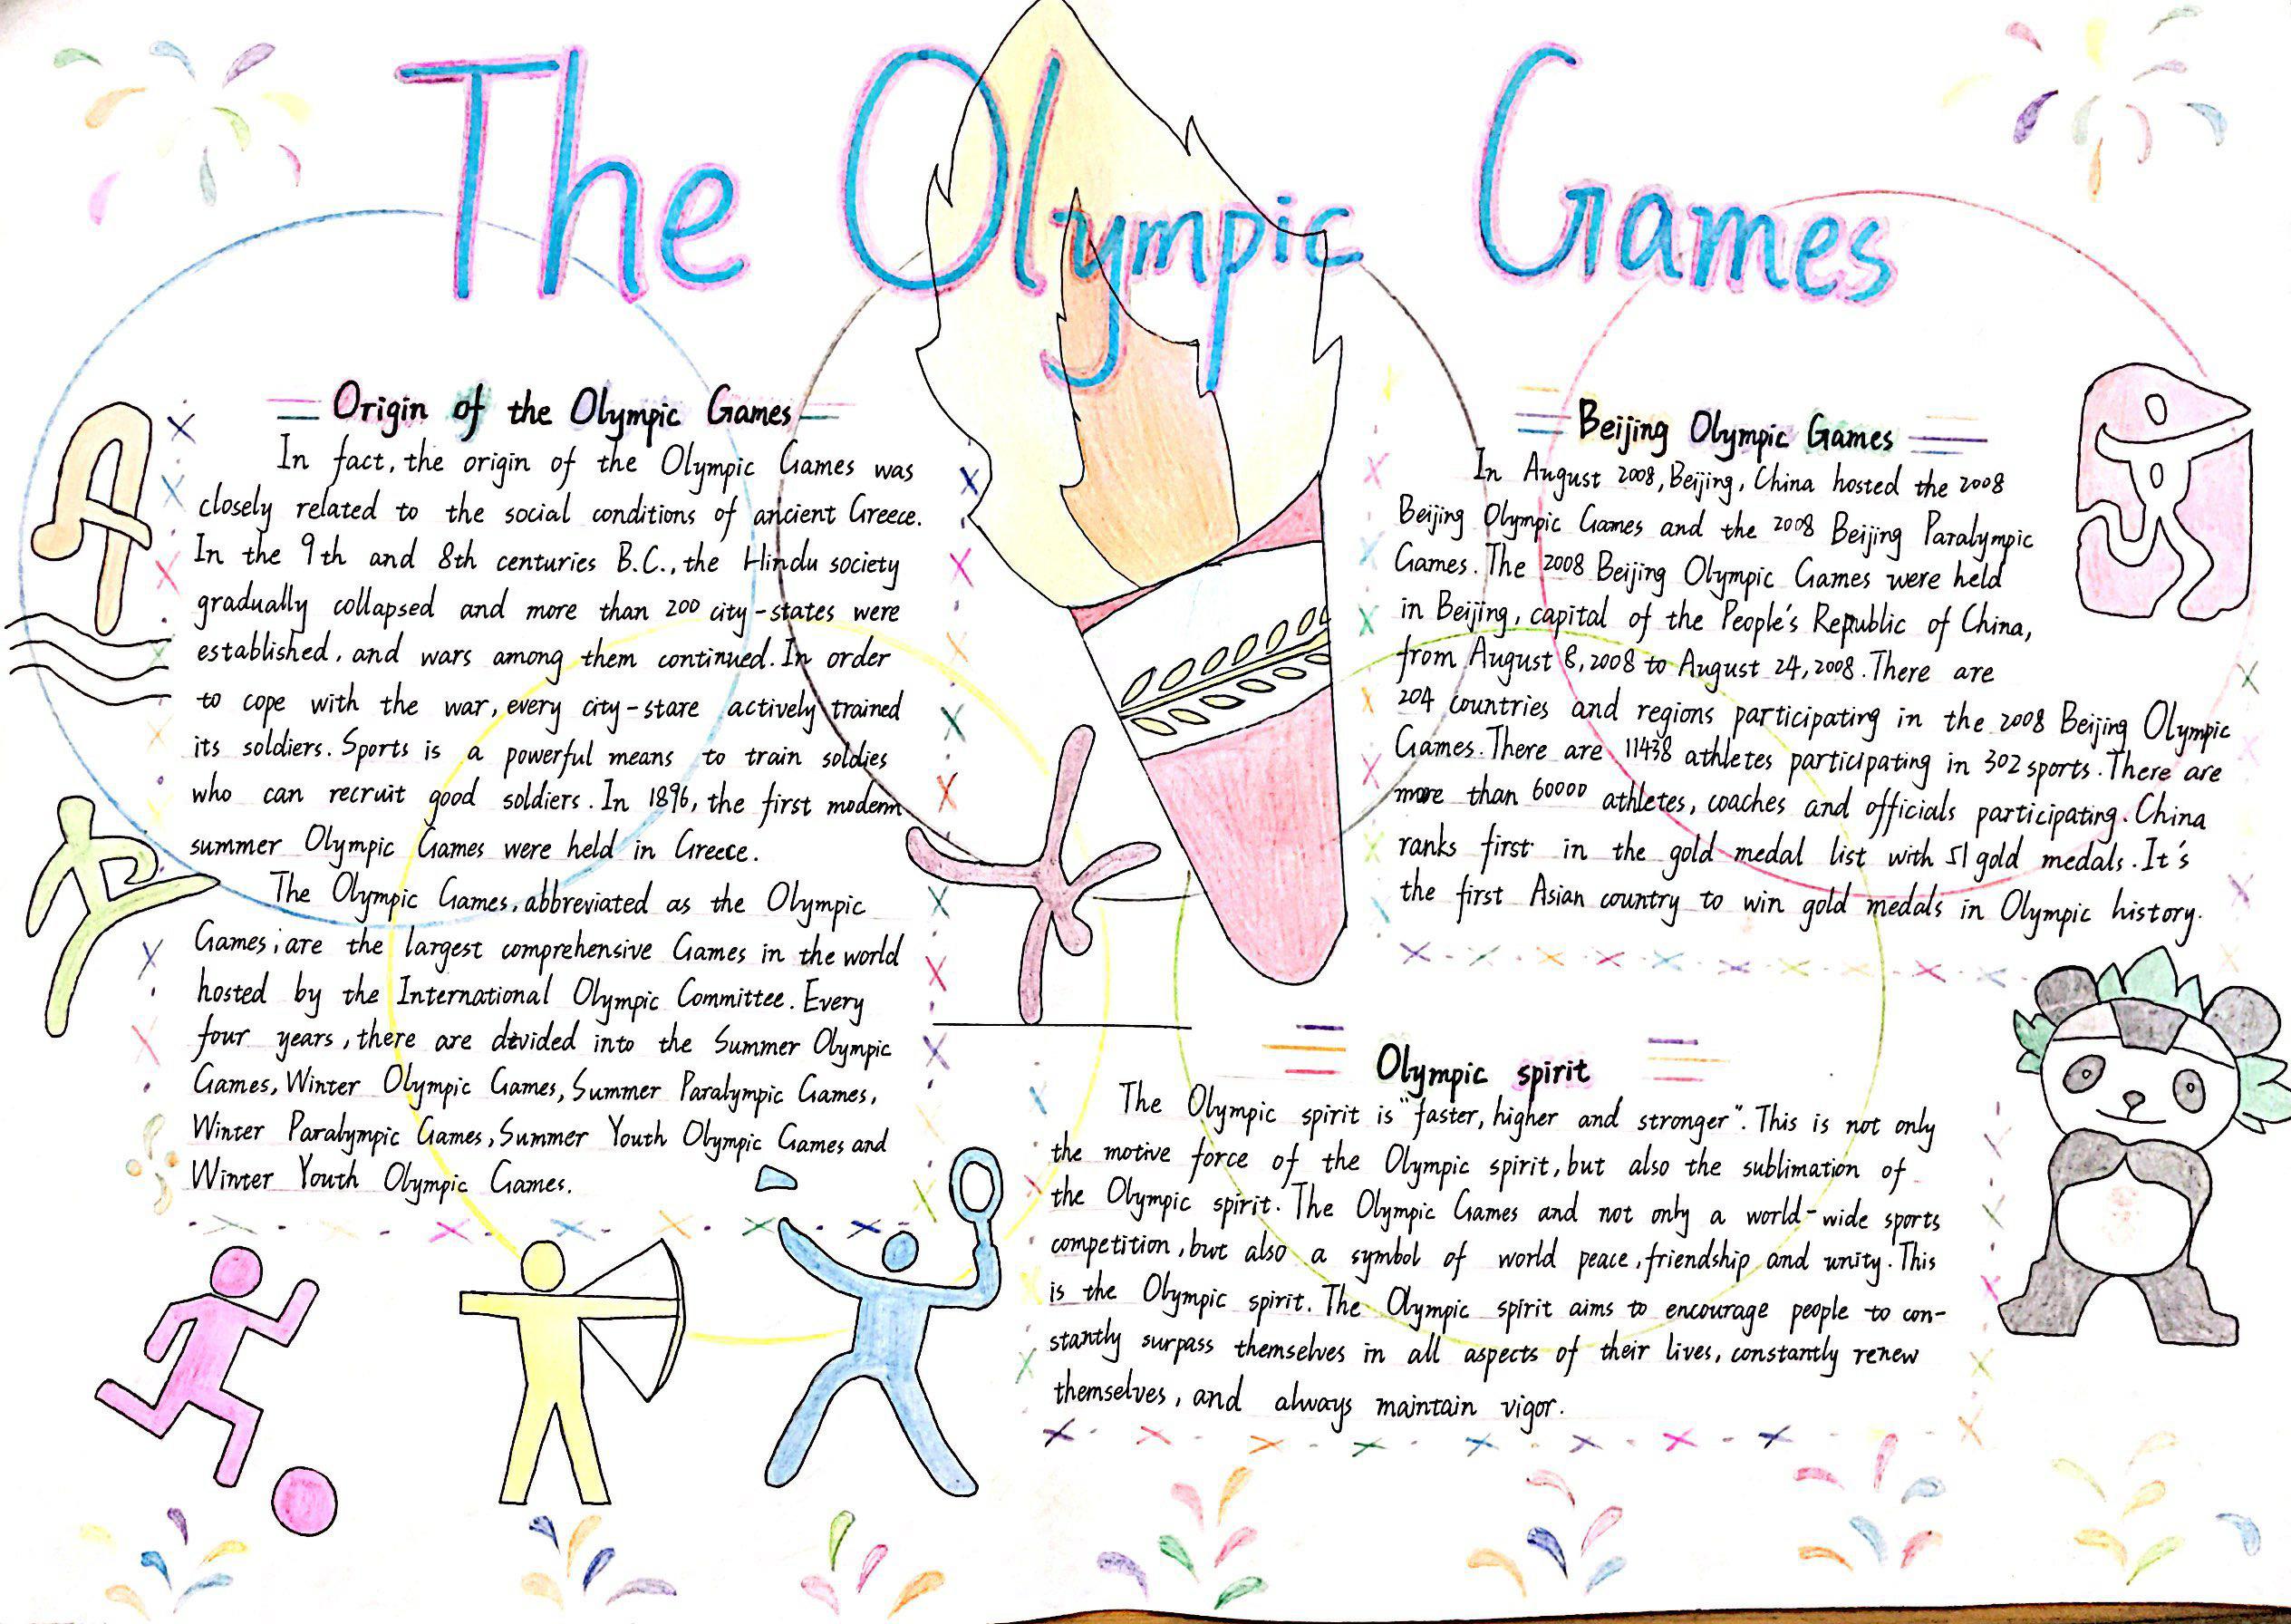 The Olympic Games
Origin of the Olympic Games
In fact, the origin of the Olympic Games was
closely related to the social conditions of ancient Greece.
In the 9th and 8th centuries B.C., the Hindu society
gradually collapsed and more than 200 city-states were
established, and wars among them continued. In order
to cope with the war, every city-stare actively trained
its soldiers. Sports is a powerful means to train soldies
who can recruit good soldiers. In 1896, the first modern
summer Olympic Games were held in Greece.
The Olympic Games, abbreviated as the Olympic
Games, are the largest comprehensive Games in the world
hosted by the International Olympic Committee. Every
four years, there are divided into the Summer Olympic
Games, Winter Olympic Games, Summer Paralympic Games,
Winter Paralympic Games, Summer Youth Olympic Games and
Winter Youth Olympic Games.
Beijing Olympic Games
In August 2008, Beijing, China hosted the 2008
Beijing Olympic Games and the 2008 Beijing Paralympic
Games. The 2008 Beijing Olympic Games were held
in Beijing, capital of the People's Republic of China,
from August 8, 2008 to August 24, 2008. There are
204 countries and regions participating in the 2008 Beijing Olympic
Games. There are 11438 athletes participating in 302 sports. There are
more than 60000 athletes, coaches and officials participating. China
ranks first in the gold medal list with 51 gold medals. It's
the first Asian country to win gold medals in Olympic history.
Olympic spirit
The Olympic spirit is "faster, higher and stronger". This is not only
the motive force of the Olympic spirit, but also the sublimation of
the Olympic spirit. The Olympic Games and not only a world-wide sports
competition, but also a symbol of world peace, friendship and unity. This
is the Olympic spirit. The Olympic spirit aims to encourage people to con-
stantly surpass themselves in all aspects of their lives, constantly renew
themselves, and always maintain vigor.